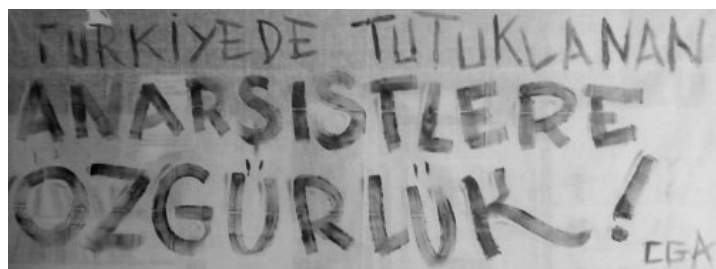 TÜRKİYEDE TUTUKLANAN
ANARŞİSTLERE
ÖZGÜRLÜK!
CGA